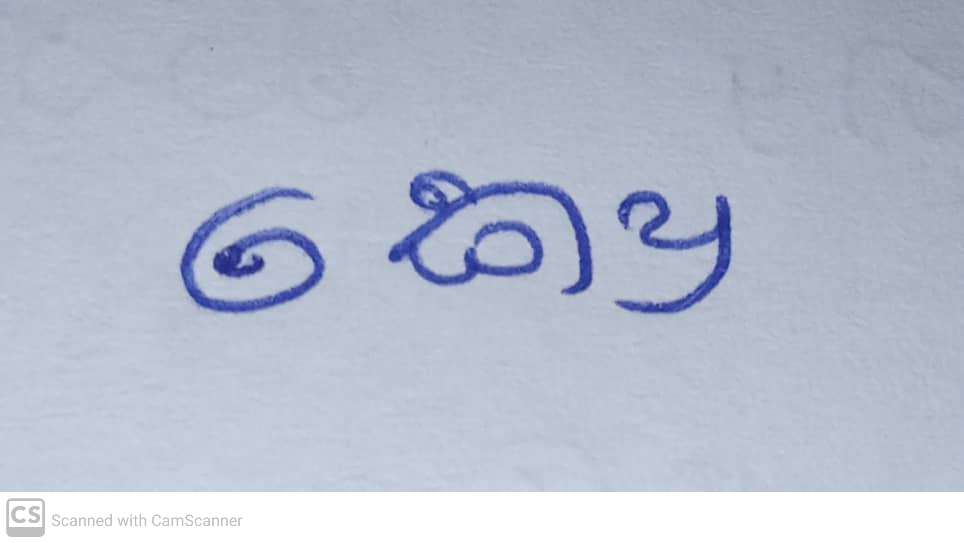 කෞ
Scanned with CamScanner